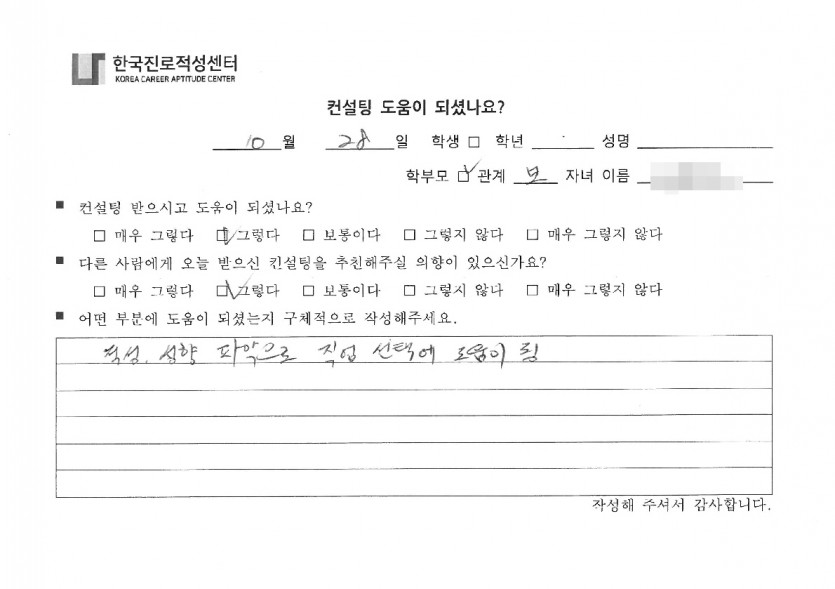 한국진로적성센터
KOREA CAREER APTITUDE CENTER
컨설팅 도움이 되셨나요?
10 월 28 일 학생 □ 학년 성명
학부모 ☑ 관계 모 자녀 이름
■ 컨설팅 받으시고 도움이 되셨나요?
□ 매우 그렇다 ☑ 그렇다 □ 보통이다 □ 그렇지 않다 □ 매우 그렇지 않다
■ 다른 사람에게 오늘 받으신 컨설팅을 추천해주실 의향이 있으신가요?
□ 매우 그렇다 ☑ 그렇다 □ 보통이다 □ 그렇지 않다 □ 매우 그렇지 않다
■ 어떤 부분에 도움이 되셨는지 구체적으로 작성해주세요.
적성, 성향 파악으로 직업 선택에 도움이 됨
작성해 주셔서 감사합니다.